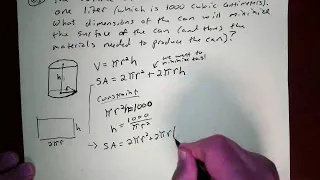 one liter (which is 1000 cubic centimeters).
What dimensions of the can will minimize
the surface of the can (and thus the
materials needed to produce the can)?
V = πr²h
we want to
minimize this!
SA = 2πr² + 2πrh
Constraint:
πr²h=1000
h = 1000/πr²
→ SA = 2πr² + 2πr(
r
h
h
2πr